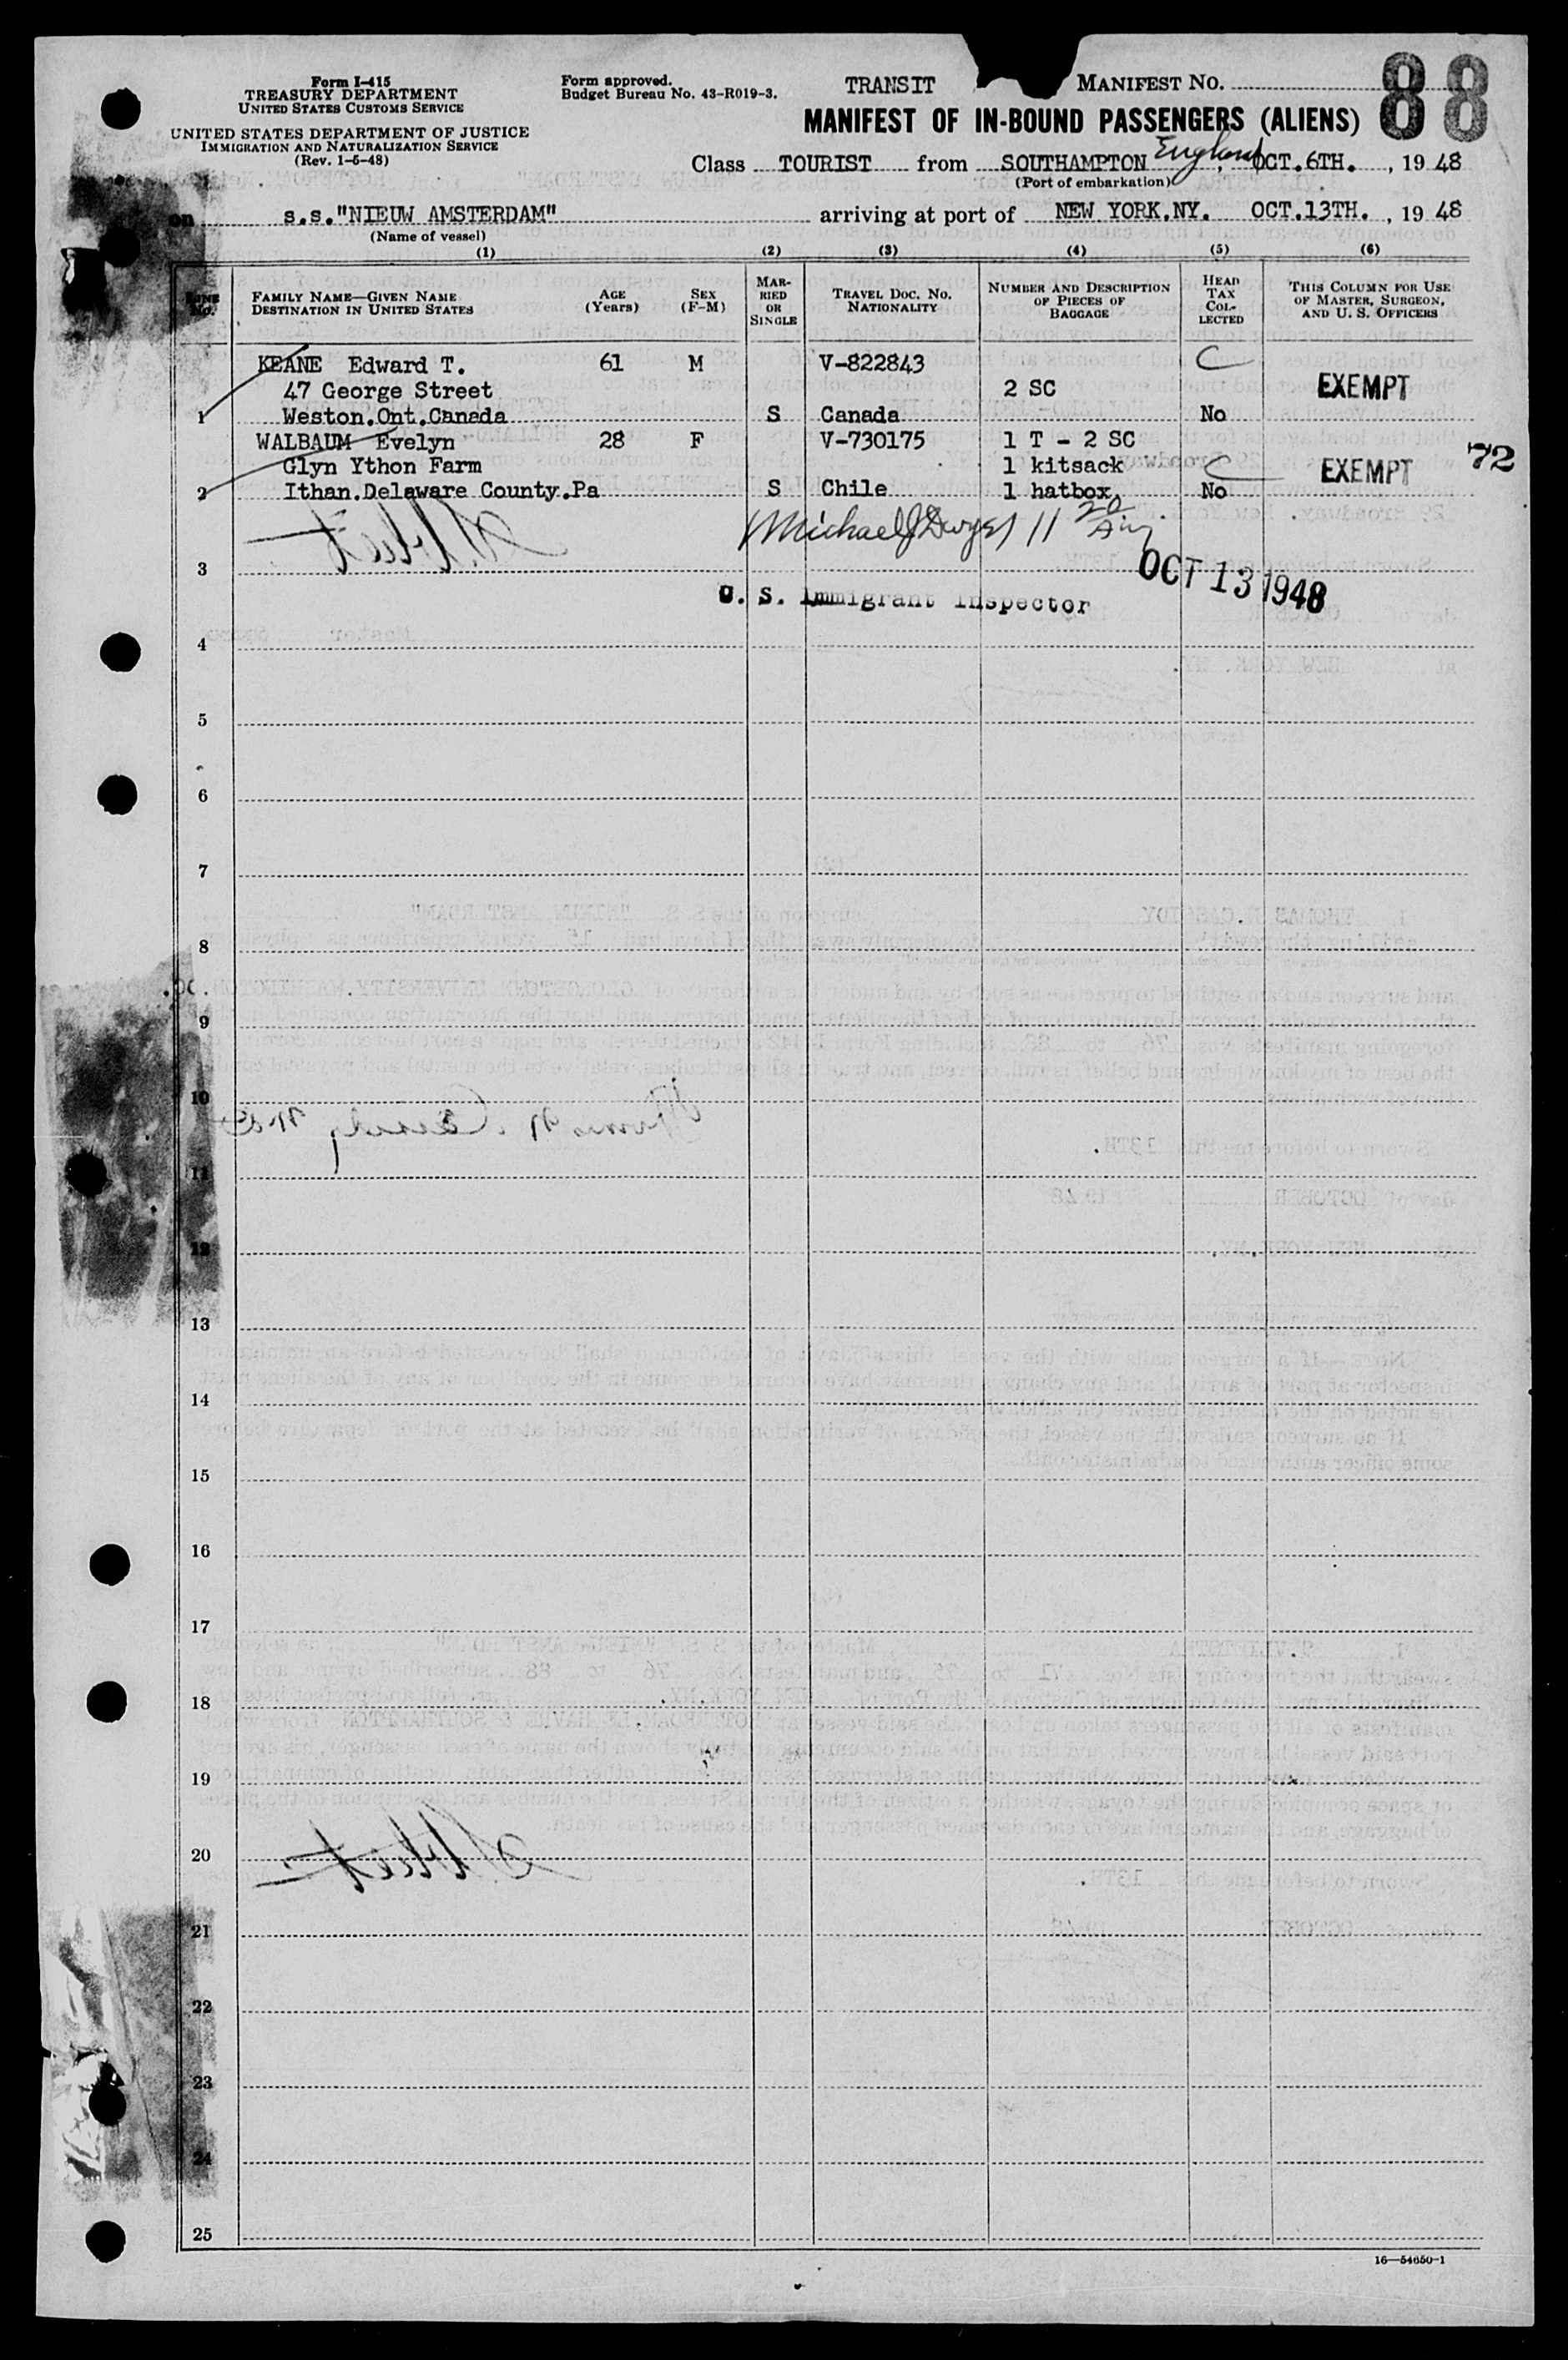 Form I-415
TREASURY DEPARTMENT
UNITED STATES CUSTOMS SERVICE
UNITED STATES DEPARTMENT OF JUSTICE
IMMIGRATION AND NATURALIZATION SERVICE
(Rev. 1-5-48)
Form approved.
Budget Bureau No. 43-R019-3.
TRANSIT
MANIFEST NO. 88
MANIFEST OF IN-BOUND PASSENGERS (ALIENS)
Class TOURIST from SOUTHAMPTON England, OCT.6TH., 19 48
(Port of embarkation)
on s.s."NIEUW AMSTERDAM" arriving at port of NEW YORK.NY. OCT.13TH., 19 48
(Name of vessel)
(1) (2) (3) (4) (5) (6)
LINE NO.
FAMILY NAME—GIVEN NAME
DESTINATION IN UNITED STATES
AGE
(Years)
SEX
(F-M)
MAR-
RIED
OR
SINGLE
TRAVEL DOC. NO.
NATIONALITY
NUMBER AND DESCRIPTION
OF PIECES OF
BAGGAGE
HEAD
TAX
COL-
LECTED
THIS COLUMN FOR USE
OF MASTER, SURGEON,
AND U. S. OFFICERS
KEANE Edward T. 61 M V-822843 C
47 George Street 2 SC EXEMPT
1 Weston.Ont.Canada S Canada No
WALBAUM Evelyn 28 F V-730175 1 T - 2 SC
Glyn Ython Farm 1 kitsack C EXEMPT 72
2 Ithan.Delaware County.Pa S Chile 1 hatbox. No
Michael J Dwyer 11
3
OCT 13 1948
U. S. Immigrant Inspector
4
5
6
7
8
9
10
11
12
13
14
15
16
17
18
19
20
21
22
23
24
25
16—54650-1